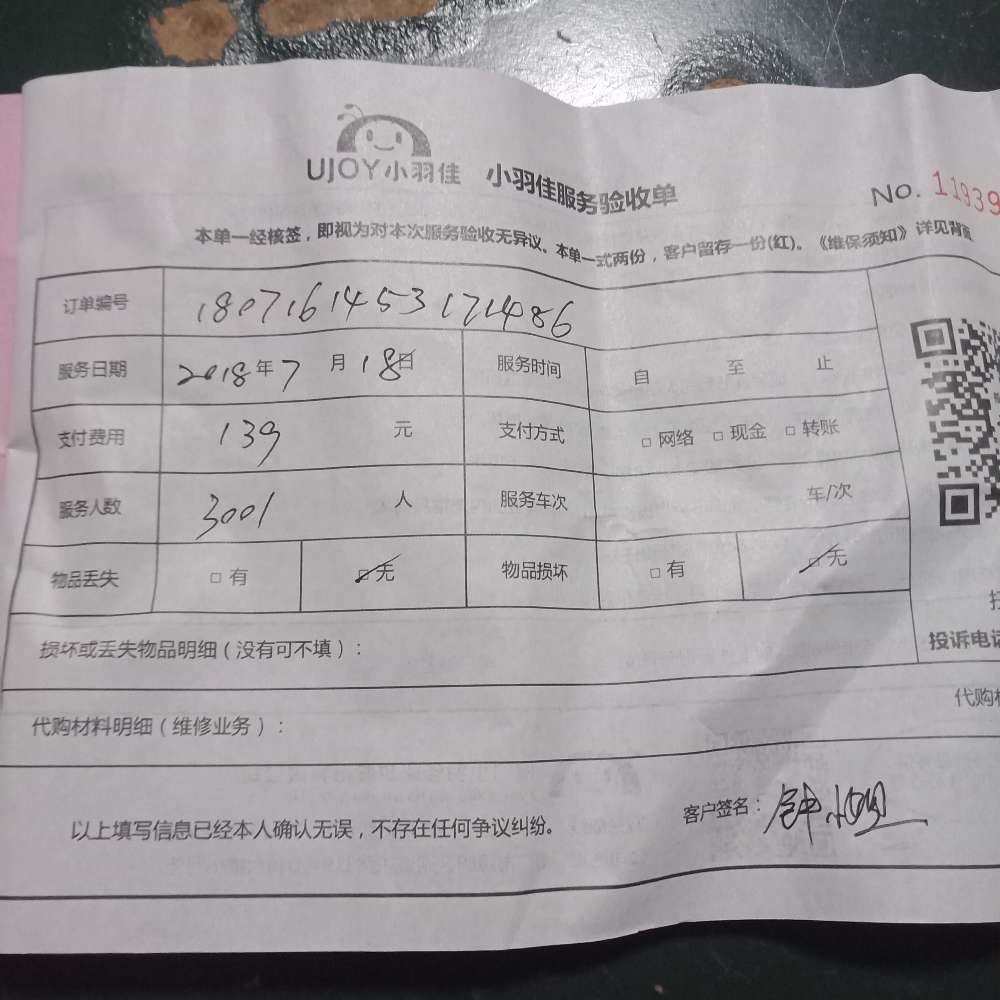 UJOY小羽佳 小羽佳服务验收单
No. 11939
本单一经核签，即视为对本次服务验收无异议。本单一式两份，客户留存一份(红)。《维保须知》详见背面
订单编号 18071614531721486
服务日期 2018年7月18日 服务时间 自 至 止
支付费用 139 元 支付方式 □ 网络 □ 现金 □ 转账
服务人数 3001 人 服务车次 车/次
物品丢失 □ 有 □ 无 物品损坏 □ 有 □ 无
投诉电话
损坏或丢失物品明细（没有可不填）：
代购材料明细（维修业务）： 代购
以上填写信息已经本人确认无误，不存在任何争议纠纷。 客户签名：钟小姐